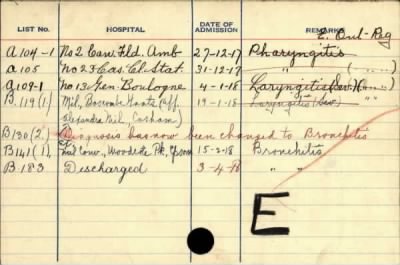 LIST No. HOSPITAL DATE OF ADMISSION REMARKS
a 104-1 No 2 Can. Fld. Amb 27-12-17 Pharyngitis
a 105 No 23 Cas. Cl. Stat. 31-12-17 "
a 109-1 No 13 Gen. Boulogne 4-1-18 Laryngitis (Sev)
B. 119 (1) Mil, 19-1-18 Laryngitis (Sev)
Alexandra Mil, Cosham)
B130 (2) Diagnosis has now been changed to Bronchitis
B141 (1) Mil Conv., Woodcote Pk, Epsom 15-2-18 Bronchitis
B 183 Discharged 3-4-18 " "
E